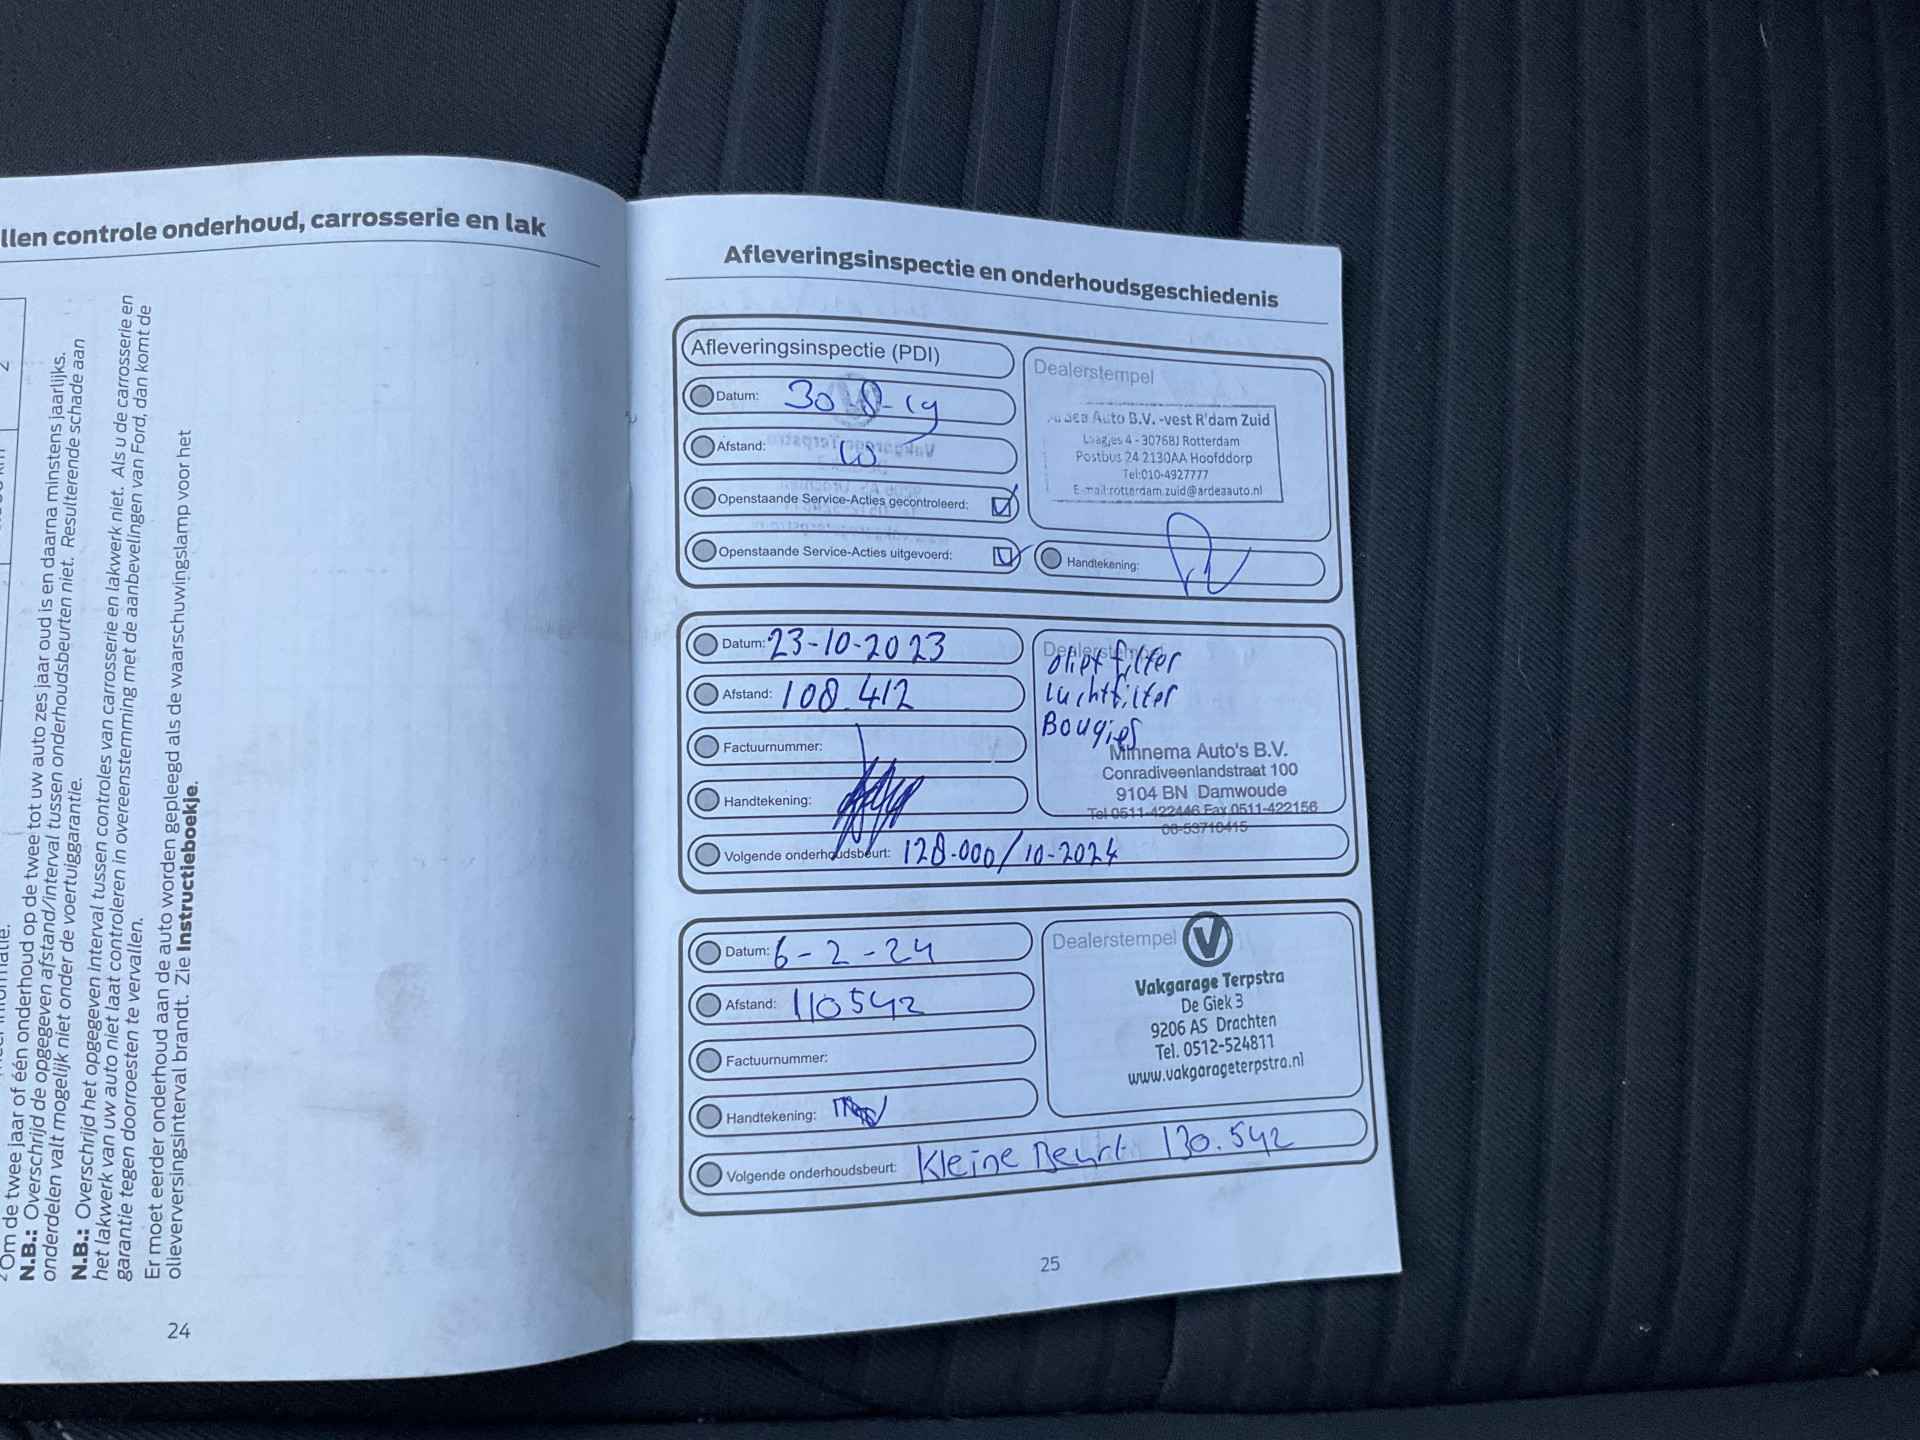 llen controle onderhoud, carrosserie en lak
2
Om de twee jaar of één onderhoud op de twee tot uw auto zes jaar oud is en daarna minstens jaarlijks.
N.B.: Overschrijd de opgegeven afstand/interval tussen onderhoudsbeurten niet. Resulterende schade aan
onderdelen valt mogelijk niet onder de voertuiggarantie.
N.B.: Overschrijd het opgegeven interval tussen controles van carrosserie en lakwerk niet. Als u de carrosserie en
het lakwerk van uw auto niet laat controleren in overeenstemming met de aanbevelingen van Ford, dan komt de
garantie tegen doorroesten te vervallen.
Er moet eerder onderhoud aan de auto worden gepleegd als de waarschuwingslamp voor het
olieverversingsinterval brandt. Zie Instructieboekje.
24
Afleveringsinspectie en onderhoudsgeschiedenis
Afleveringsinspectie (PDI)
Datum: 30-8-19
Afstand:
Openstaande Service-Acties gecontroleerd:
Openstaande Service-Acties uitgevoerd:
Dealerstempel
Auto B.V. -vest R'dam Zuid
Laagjes 4 - 3076BJ Rotterdam
Postbus 24 2130AA Hoofddorp
Tel:010-4927777
E-mail:rotterdam.zuid@ardeaauto.nl
Handtekening:
Datum: 23-10-2023
Afstand: 108.412
Factuurnummer:
Handtekening:
Volgende onderhoudsbeurt: 128.000/10-2024
Dealerstempel
filter
Luchtfilter
Bougies
Minnema Auto's B.V.
Conradiveenlandstraat 100
9104 BN Damwoude
Tel 0511-422446 Fax 0511-422156
06-53710415
Datum: 6-2-24
Afstand: 110542
Factuurnummer:
Handtekening:
Volgende onderhoudsbeurt: Kleine Beurt 130.542
Dealerstempel
V
Vakgarage Terpstra
De Giek 3
9206 AS Drachten
Tel. 0512-524811
www.vakgarageterpstra.nl
25